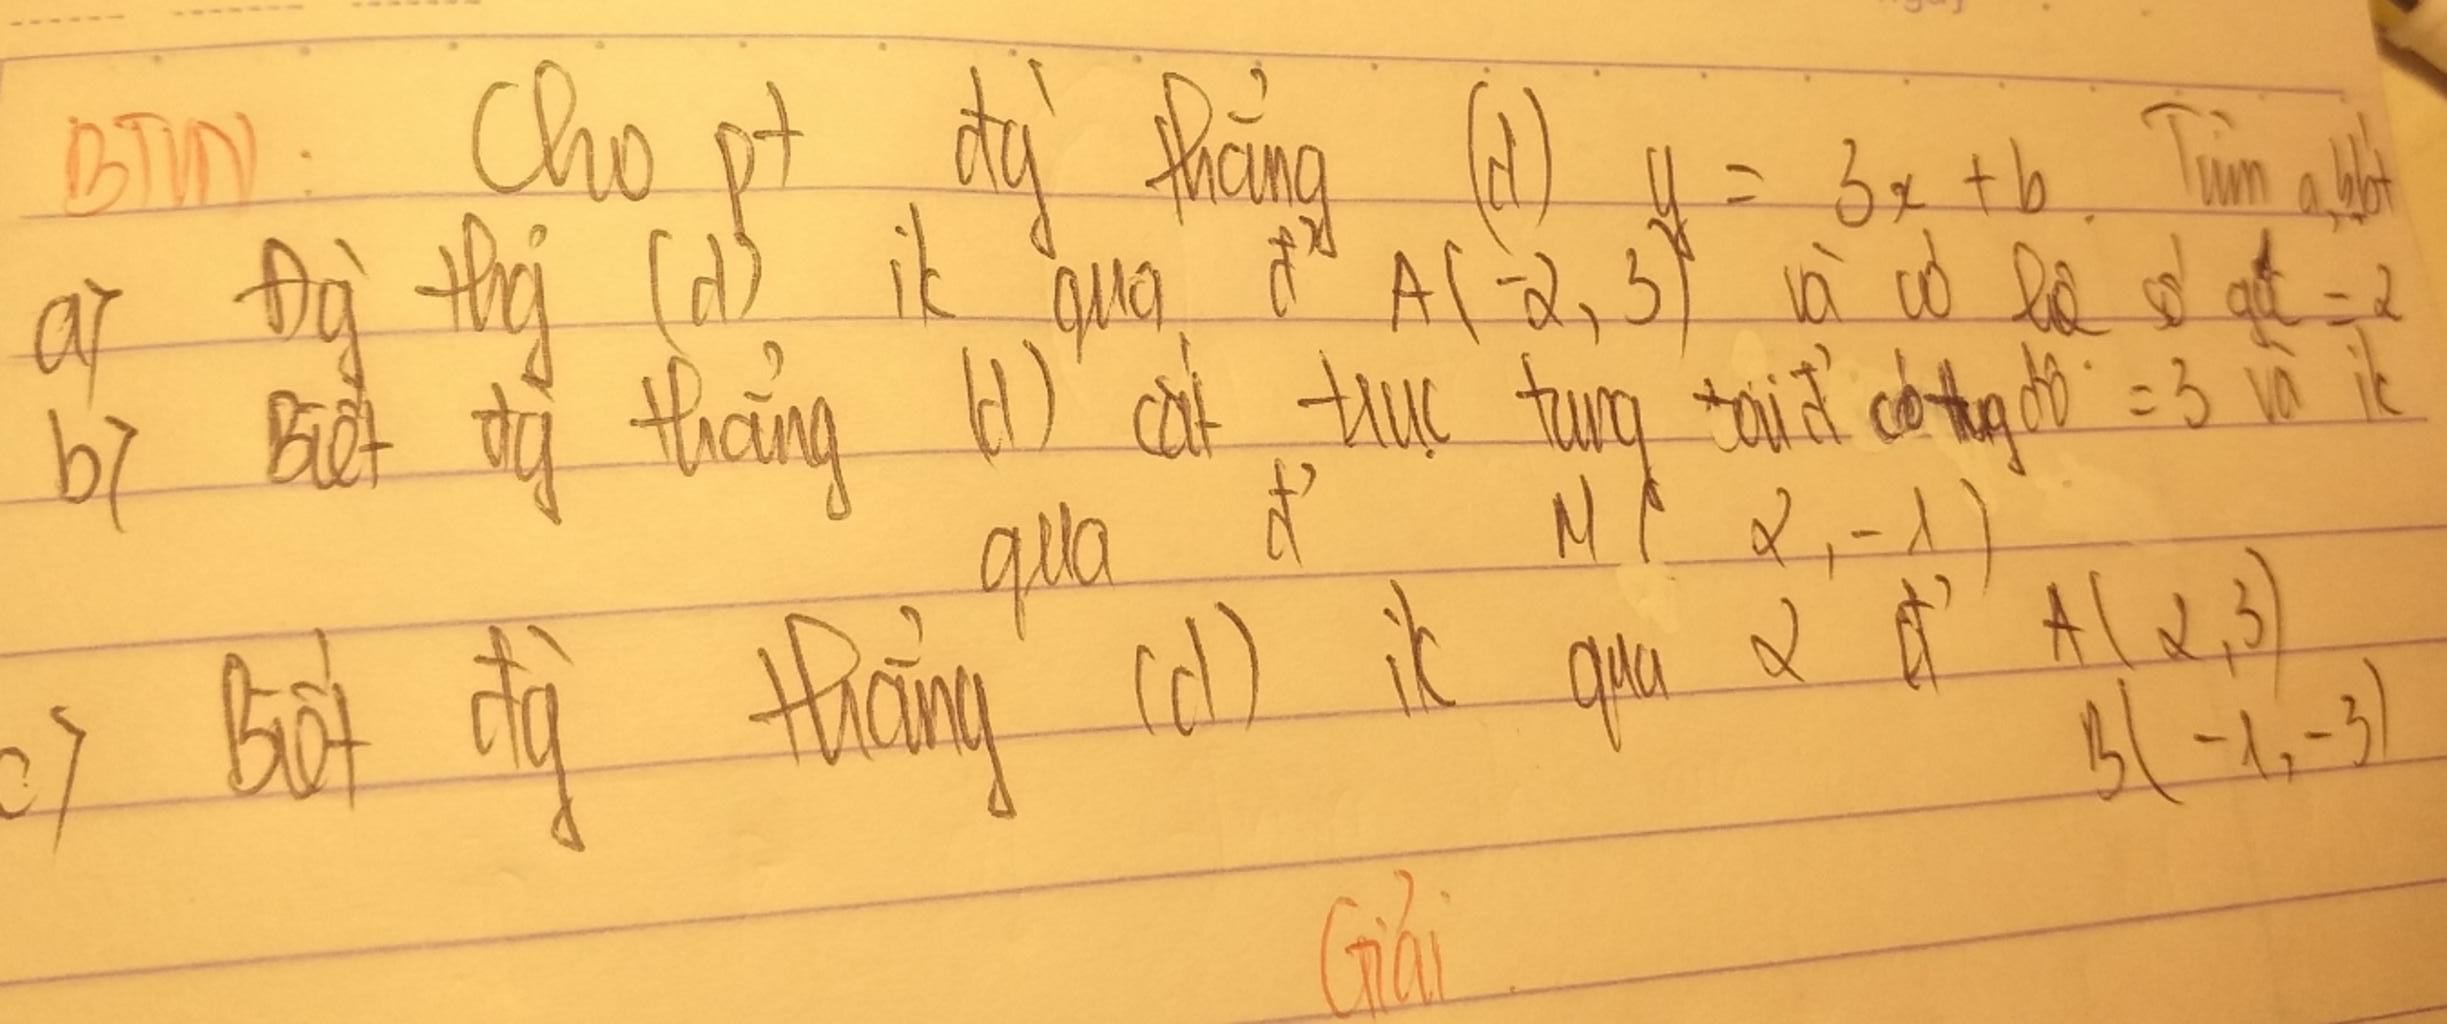 BTVN: Cho pt đg` thẳng (d) y = 3x + b. Tìm a, b bt
a) Đg` thg̉ (d) ik qua đ' A(-2, 3) và có hệ số góc = 2
b) Biết đg` thẳng (d) cắt trục tung tại đ' có tung độ = 3 và ik
qua đ' M( 2, -1)
c) Biết đg` thẳng (d) ik qua 2 đ' A( 2,3)
B( -1, -3)
Giải